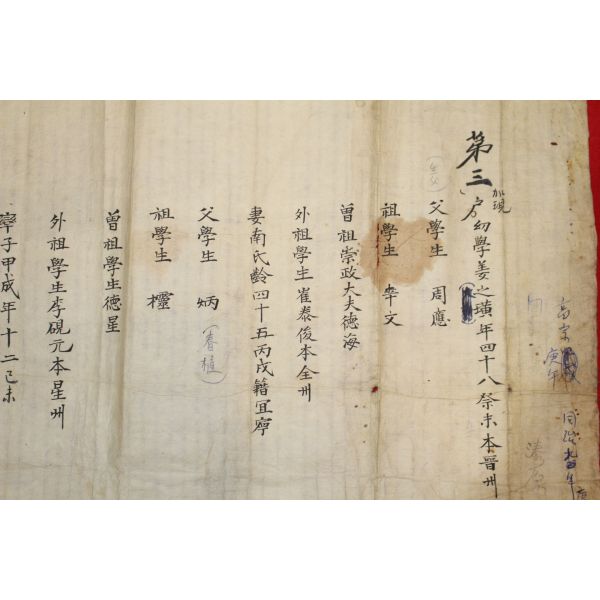 高宗
庚午
第三户幼學姜之璜年四十八癸未本晋州
加現
父學生 周應
祖學生 華文
曾祖崇政大夫德海
外祖學生崔泰俊本全州
妻南氏齡四十五丙戌籍宜寧
父學生 炳
(春植)
祖學生 欞
曾祖學生德星
外祖學生李硯元本星州
率子甲成年十二己未